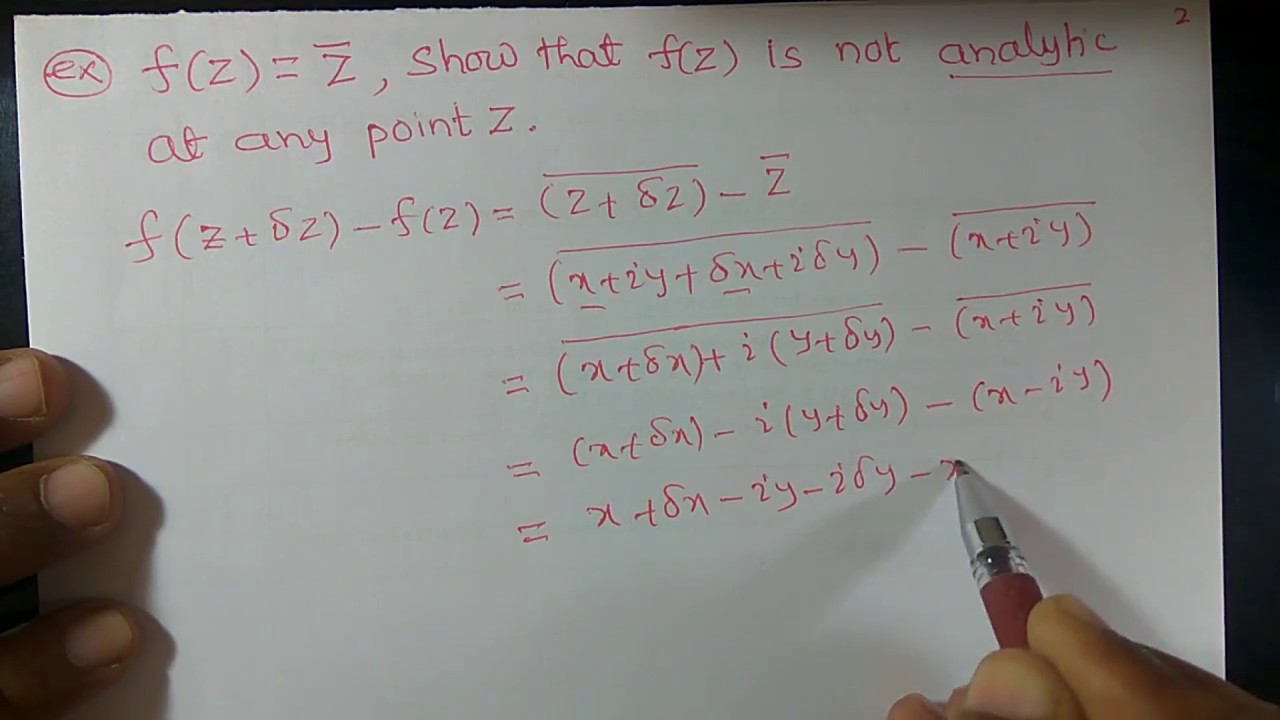 2
ex f(z) = z̅, show that f(z) is not analytic
at any point z.
f(z+δz) − f(z) = \overline{(z+δz)} − z̅
= \overline{(x+iy+δx+iδy)} − \overline{(x+iy)}
= \overline{(x+δx)+i(y+δy)} − \overline{(x+iy)}
= (x+δx) − i(y+δy) − (x−iy)
= x+δx − iy − iδy − x